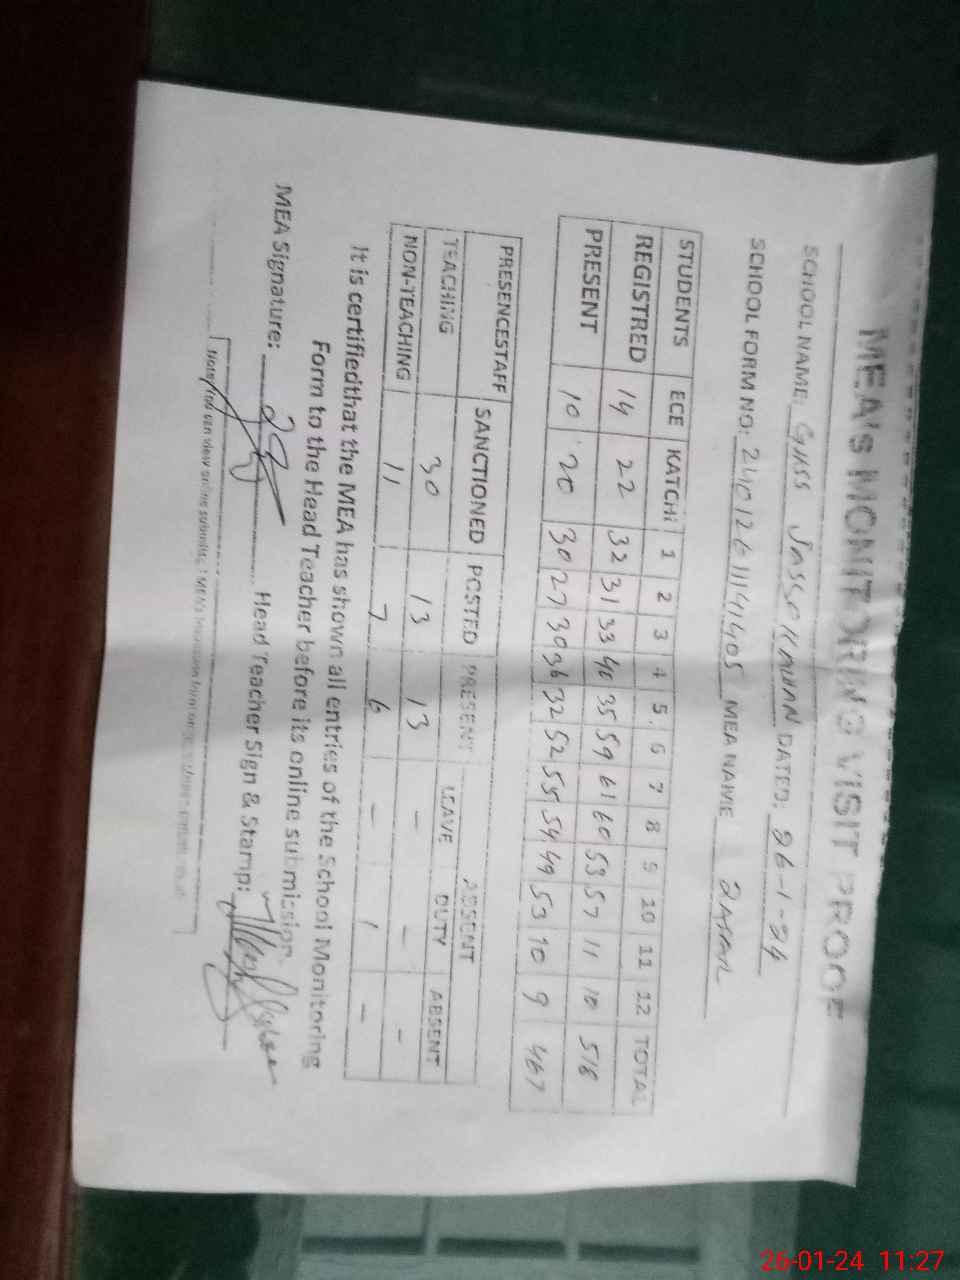 MEA's MONITORING VISIT PROOF
SCHOOL NAME: GHSS DATED: 26-1-24
SCHOOL FORM NO: MEA NAME
STUDENTS ECE KATCHI 1 2 3 4 5 6 7 8 9 10 11 12 TOTAL
REGISTRED 14 22 32 31 33 40 35 59 61 60 53 57 11 10 518
PRESENT 10 20 30 27 30 36 32 52 55 54 49 53 10 9 467
PRESENCESTAFF SANCTIONED POSTED PRESENT ABSENT
LEAVE DUTY ABSENT
TEACHING 30 13 13 - - -
NON-TEACHING 11 7 6 - 1 -
It is certifiedthat the MEA has shown all entries of the School Monitoring
Form to the Head Teacher before its online submission
MEA Signature: Head Teacher Sign & Stamp:
Note: You can view online submitted MEAs
26-01-24 11:27